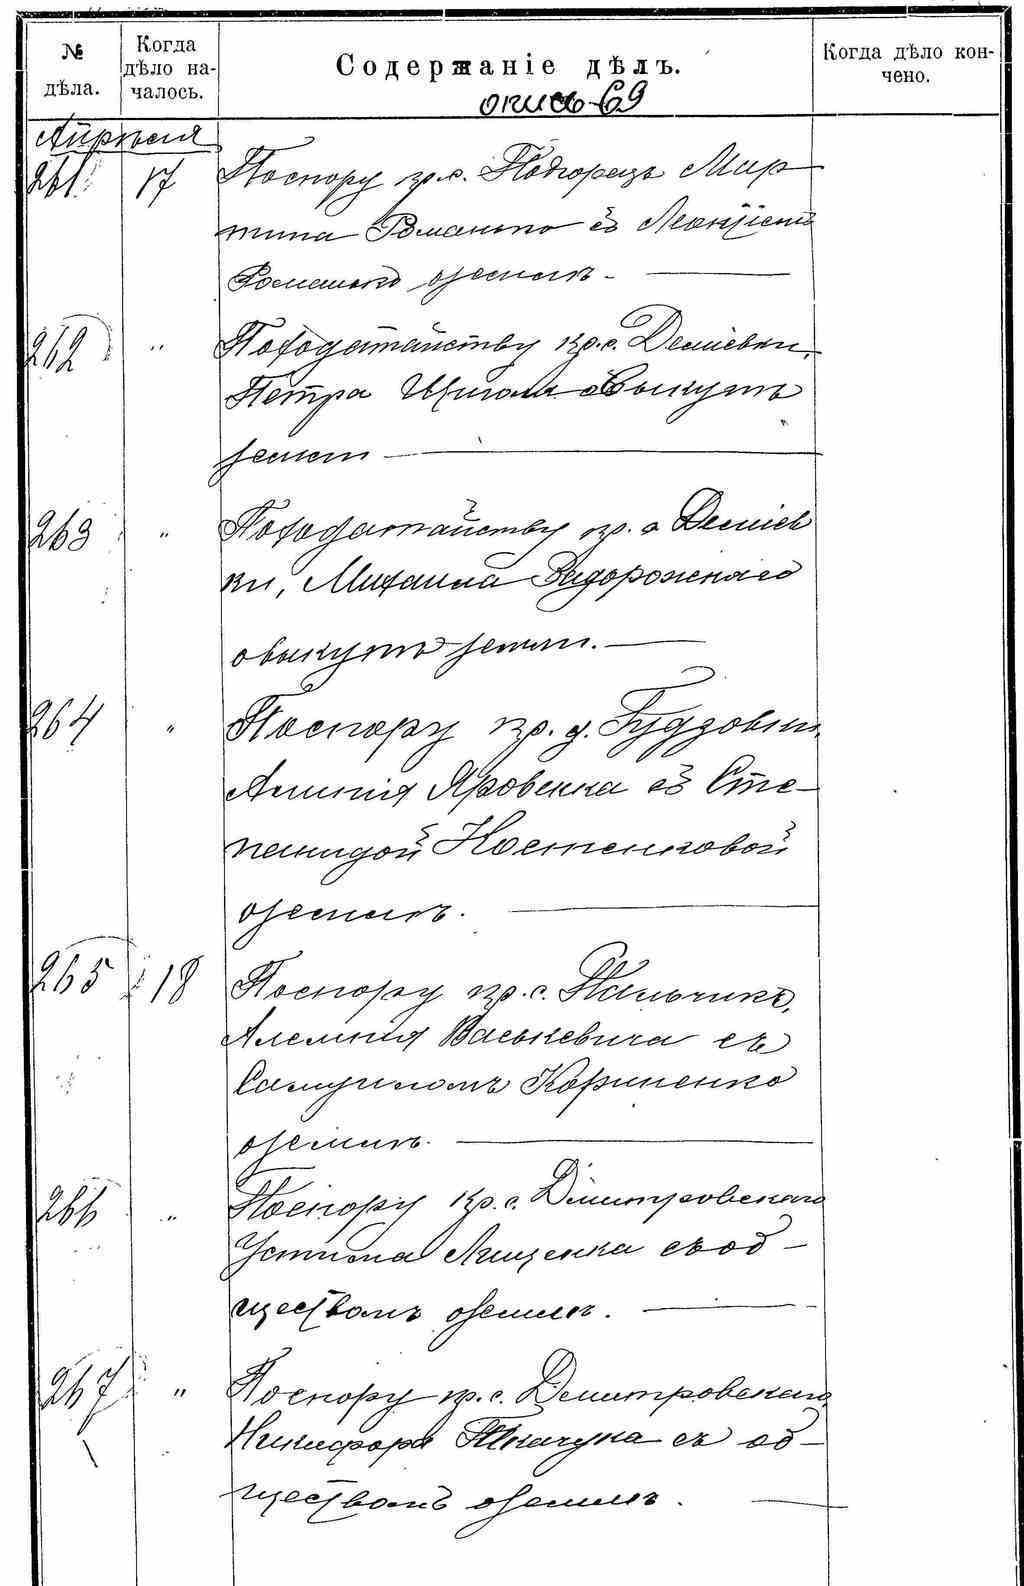 № дѣла.
Когда дѣло началось.
Содержаніе дѣлъ.
Когда дѣло кончено.
опись 69
Апрѣля
261 17 По спору кр. с. Подгорецъ Мар
тина Романько съ Леонтіемъ
Романько о землѣ.
262 " По ходатайству кр. с. Деміевки,
Петра о выкупѣ
земли
263 " По ходатайству кр. с. Деміев
ки, Михаила Задорожняго
о выкупѣ земли.
264 " По спору кр. д. Гудзовки,
Яровенка съ Сте-
панидой Костенковой
о землѣ.
265 18 По спору кр. с. Пальчика,
Алексѣя Васькевича съ
Самуиломъ Корниенко
о землѣ.
266 " По спору кр. с. Дмитровскаго
Устима Лищенка съ об-
ществомъ о землѣ.
267 " По спору кр. с. Дмитровскаго
Никифора Ткачука съ об-
ществомъ о землѣ.